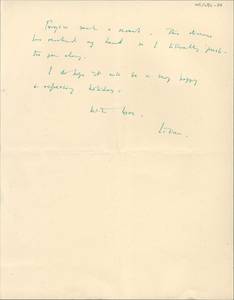 Forgive such a scrawl. This disease
has reached my hand so I literally push
the pen along.
I do hope it will be a very happy
& refreshing holiday.
With love,
Lilian.